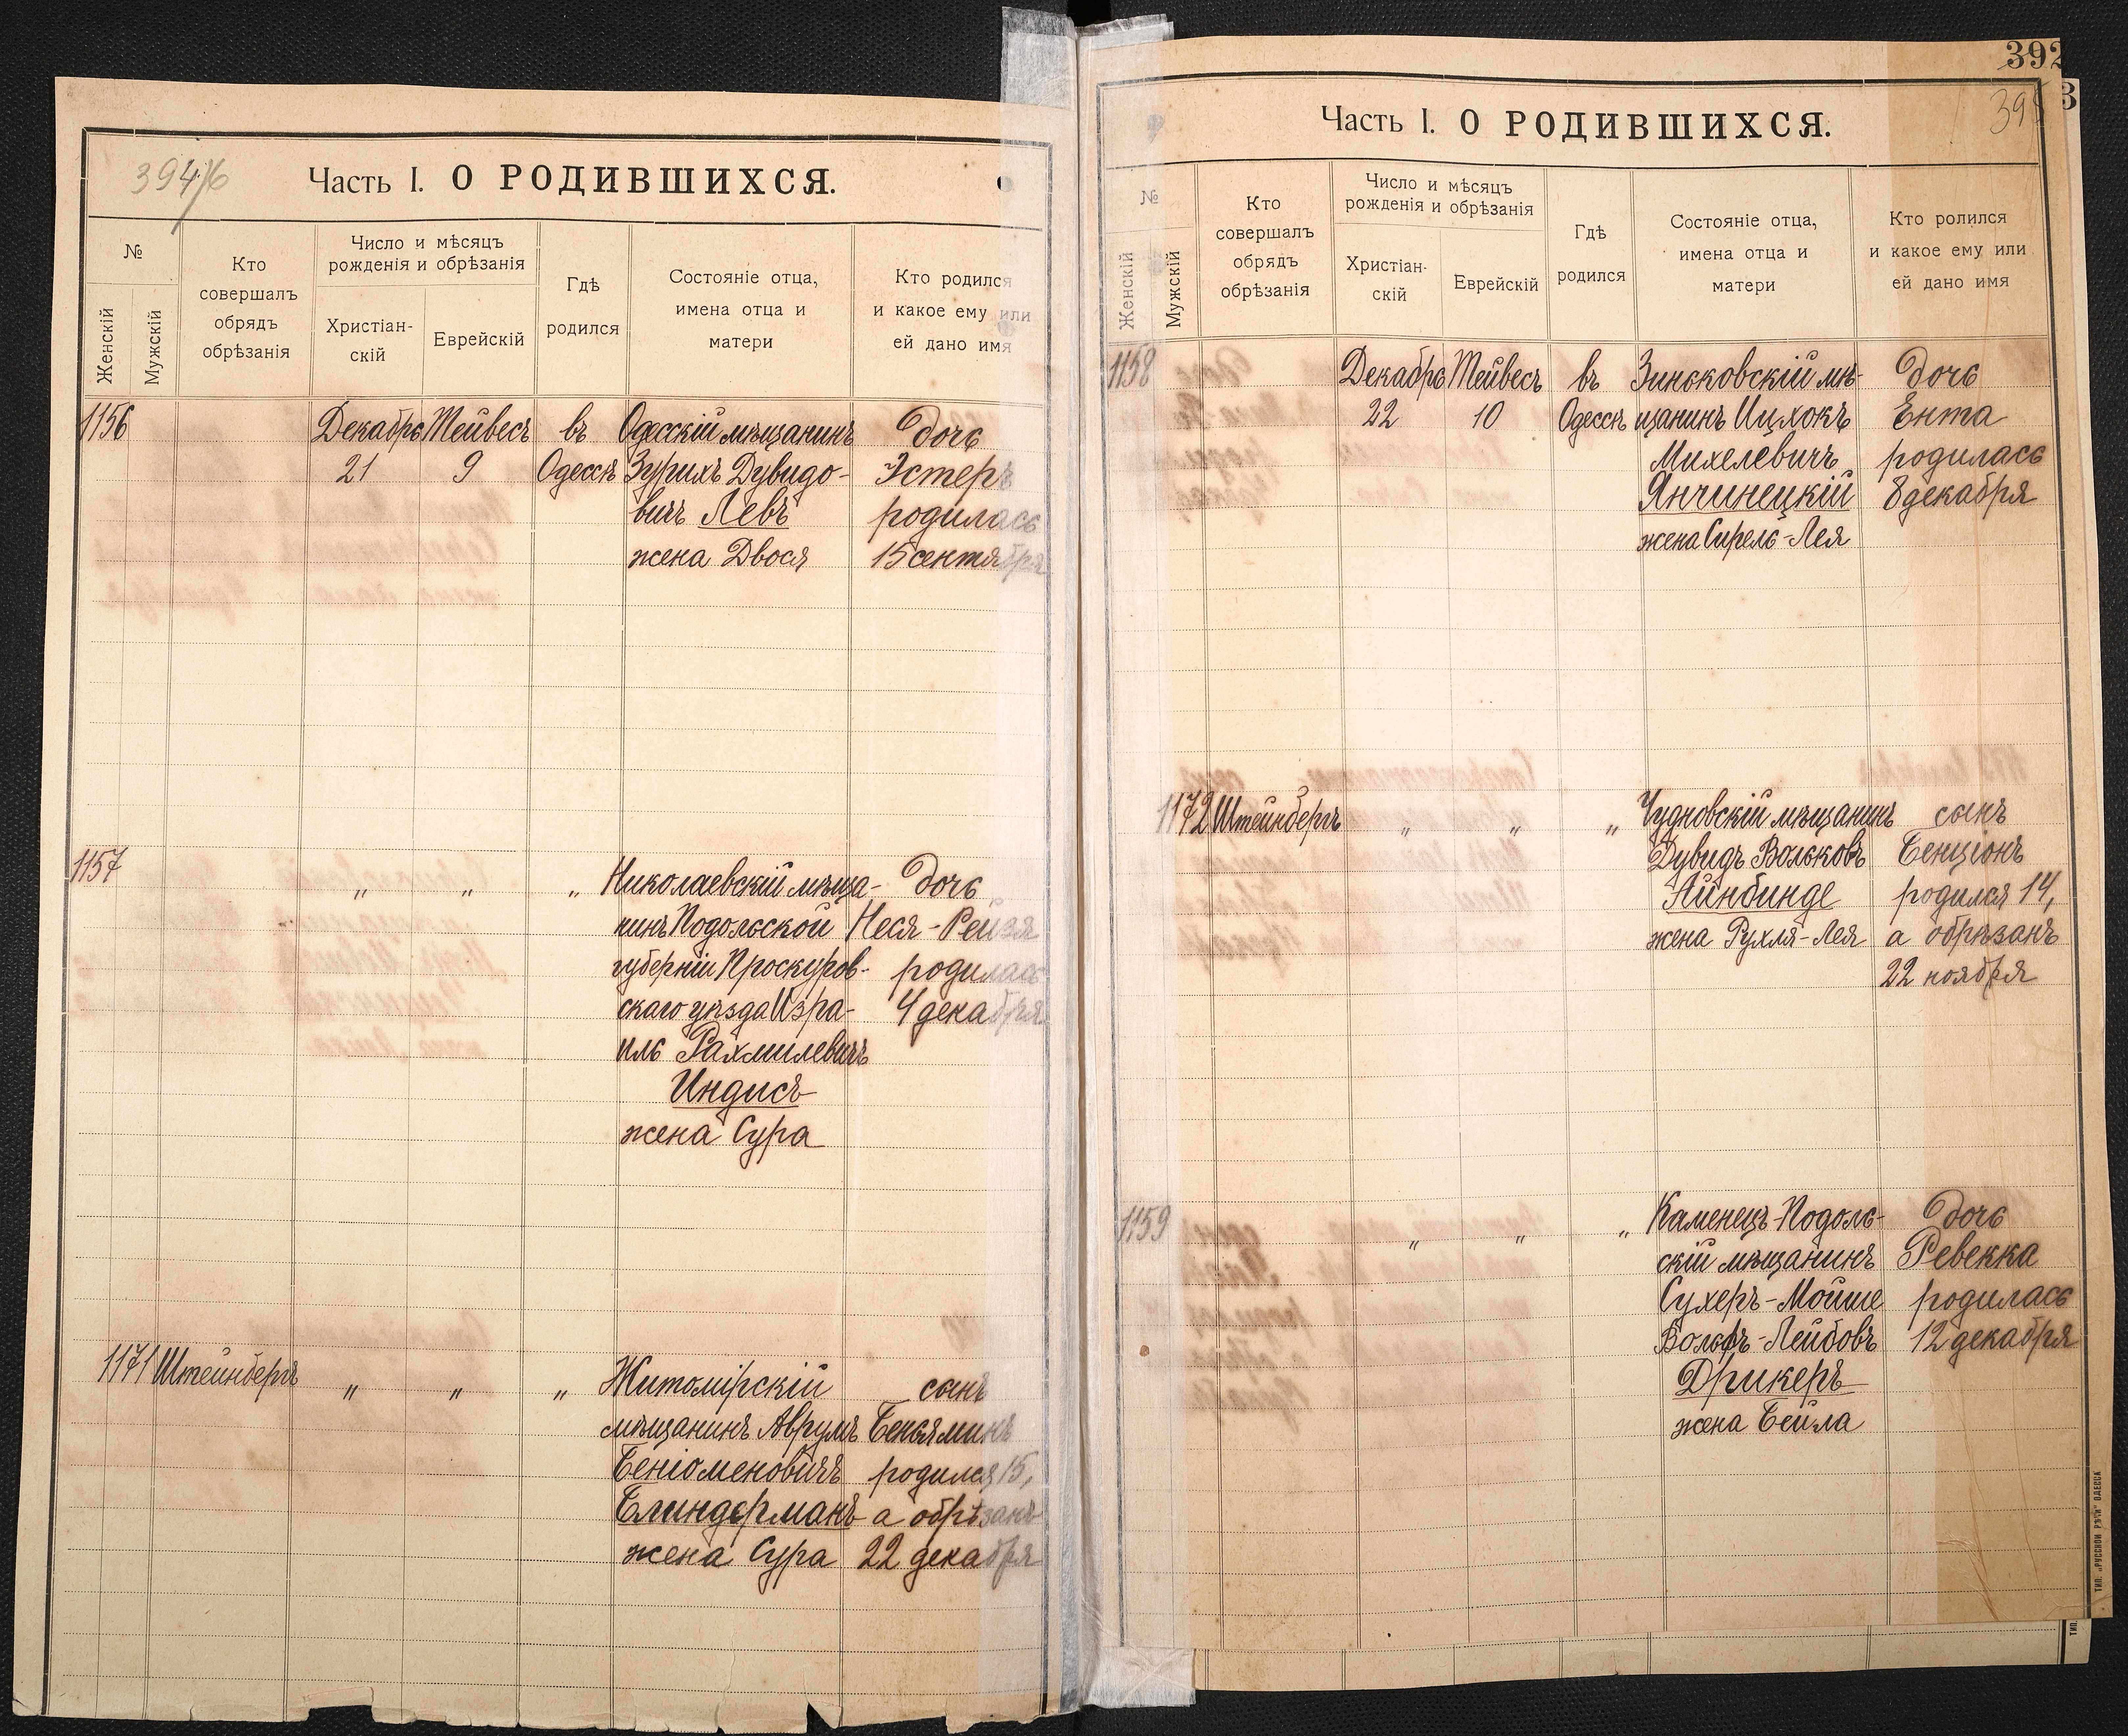 394/6
Часть I. О РОДИВШИХСЯ.
№
Женскій
Мужскій
Кто
совершалъ
обрядъ
обрѣзанія
Число и мѣсяцъ
рожденія и обрѣзанія
Христіан-
скій
Еврейскій
Гдѣ
родился
Состояніе отца,
имена отца и
матери
Кто родился
и какое ему или
ей дано имя
1156 Декабрь Тейвесъ въ Одесскій мѣщанинъ дочь
21 9 Одессѣ Зурихъ Дувидо- Эстеръ
вичъ Левъ родилась
жена Двося 15 сентября
1157 „ „ „ Николаевскій мѣща- дочь
нинъ Подольской Неся-Рейзя
губерніи Проскуров- родилась
скаго уѣзда Изра- 4 декабря
иль Рахмилевичъ
Индисъ
жена Сура
1171 Штейнбергъ „ „ „ Житомірскій сынъ
мѣщанинъ Аврумъ Беньяминъ
Беніоменовичъ родился 15,
Блиндерманъ а обрѣзанъ
жена Сура 22 декабря
392
395
Часть I. О РОДИВШИХСЯ.
№
Женскій
Мужскій
Кто
совершалъ
обрядъ
обрѣзанія
Число и мѣсяцъ
рожденія и обрѣзанія
Христіан-
скій
Еврейскій
Гдѣ
родился
Состояніе отца,
имена отца и
матери
Кто ролился
и какое ему или
ей дано имя
1158 Декабрь Тейвесъ въ Зиньковскій мѣ- дочь
22 10 Одессѣ щанинъ Ицхокъ Ента
Михелевичъ родилась
Янчинецкій 8 декабря
жена Сирель-Лея
1172 Штейнбергъ „ „ „ Чудновскій мѣщанинъ сынъ
Дувидъ Вольковъ Бенціонъ
Айнбинде родился 14,
жена Рухля-Лея а обрѣзанъ
22 ноября
1159 „ „ „ Каменецъ-Подоль- дочь
скій мѣщанинъ Ревекка
Сухеръ-Мойше родилась
Вольфъ-Лейбовъ 12 декабря
Дрикеръ
жена Бейла
ТИП. „РУССКОЙ РѢЧИ" ОДЕССА